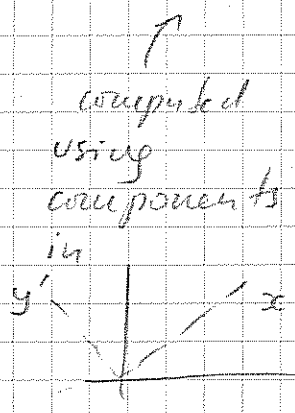 computed
using
components
in
y' x